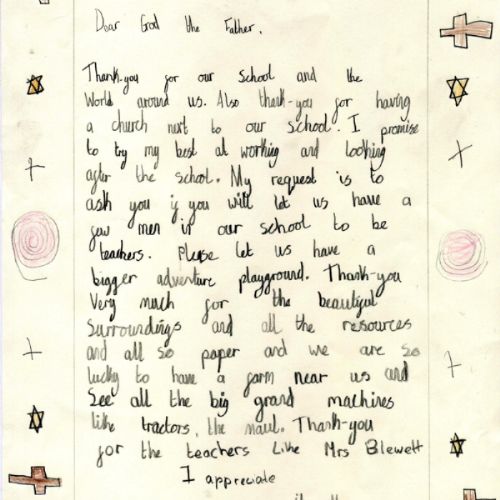 Dear God the Father,
Thank-you for our School and the
World around us. Also thank-you for having
a church next to our school. I promise
to try my best at working and looking
after the school. My request is to
ask you if you will let us have a
few men in our school to be
teachers. Please let us have a
bigger adventure playground. Thank-you
Very much for the beautiful
Surroundings and all the resources
and all so paper and we are so
lucky to have a farm near us and
See all the big grand machines
like tractors, the
Thank-you
for the teachers Like Mrs Blewett
I appreciate